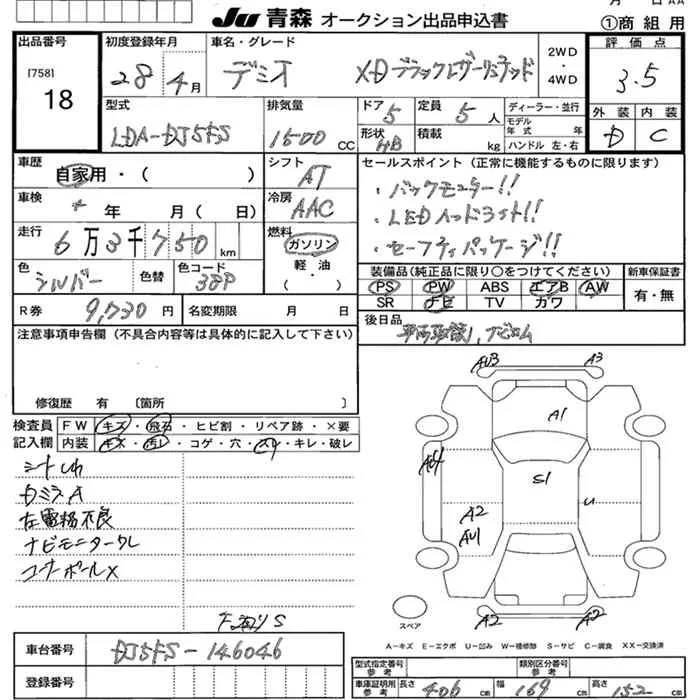 月 日 AA
JU 青森 オークション出品申込書
①商組用
出品番号
[758]
18
初度登録年月
28年4月
車名・グレード
デミオ XDブラックレザーリミテッド
2WD
・
4WD
評価点
3.5
外装 内装
D C
型式
LDA-DJ5FS
排気量
1500 CC
ドア 5
定員 5人
ディーラー・並行
モデル年式 年
形状 HB
積載 kg
ハンドル 左・右
車歴
自家用・( )
シフト
AT
車検
年 月( 日)
冷房
AAC
走行
6万3千750km
燃料
ガソリン
軽油
( ・ )
色
シルバー
色替
色コード
38P
セールスポイント(正常に機能するものに限ります)
・バックモニター!!
・LEDヘッドライト!!
・セーフティパッケージ!!
装備品(純正品に限り○をつけてください)
PS PW ABS エアB AW
SR ナビ TV カワ
新車保証書
有・無
R券 9,730円
名変期限 月 日
後日品
注意事項申告欄(不具合内容等は具体的に記入して下さい)
修復歴 有 〔箇所 〕
検査員
記入欄
FW キズ・飛石・ヒビ割・リペア跡・×要
内装 キズ・汚レ・コゲ・穴・スレ・キレ・破レ
シートしわ
DミラーA
左電格不良
ナビモニタークレ
コーナーポールX
S
AU3
A3
A1
AU4
S1
U
A2
AU1
A2
A2
スペア
A－キズ E－エクボ U－凹み W－補修跡 S－サビ C－腐食 XX－交換済
車台番号
DJ5FS-146046
登録番号
型式指定番号
参考
類別区分番号
参考
車庫証明用
参考
長さ 406cm 幅 169cm 高さ 152cm